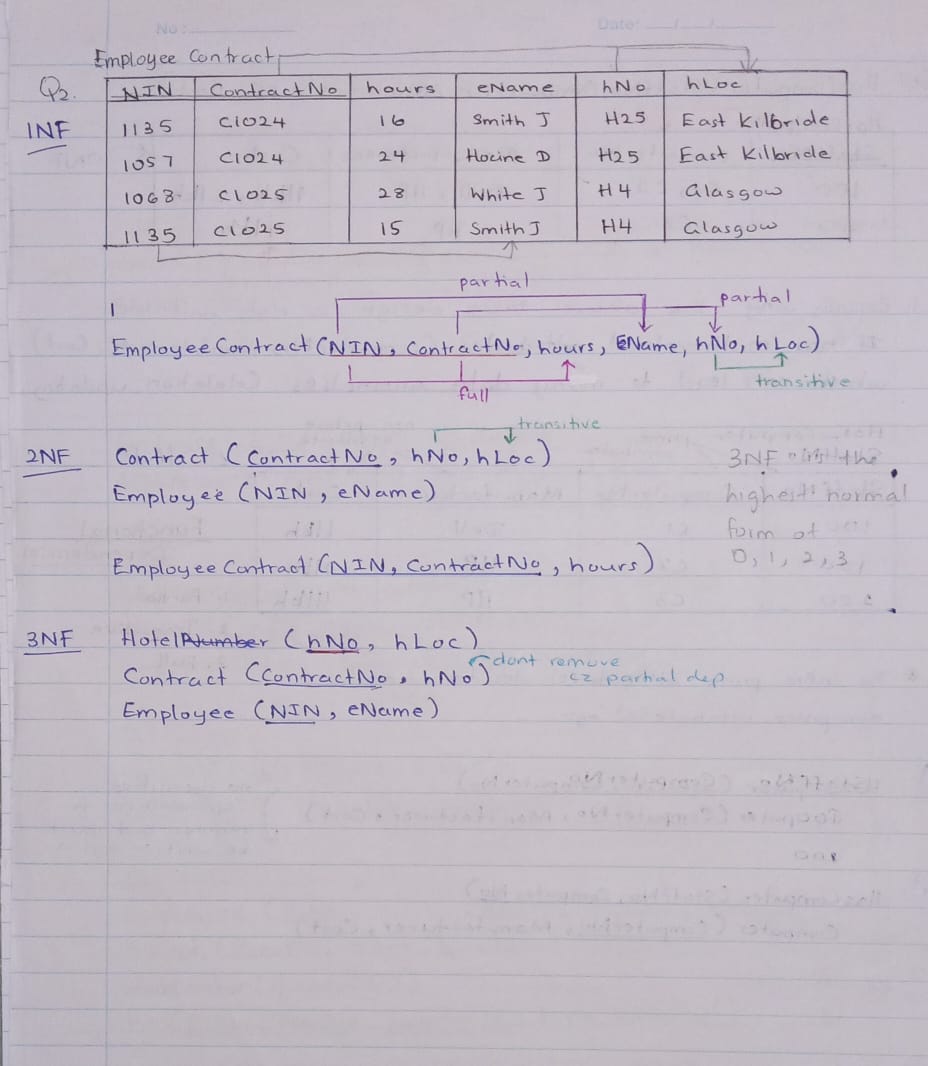 No: Date: / /
Employee Contract
Q2.
NIN ContractNo hours eName hNo hLoc
1NF
1135 C1024 16 Smith J H25 East Kilbride
1057 C1024 24 Hocine D H25 East Kilbride
1068 C1025 28 White J H4 Glasgow
1135 C1025 15 Smith J H4 Glasgow
partial
partial
EmployeeContract (NIN, ContractNo, hours, EName, hNo, hLoc)
full
transitive
transitive
2NF Contract (ContractNo, hNo, hLoc)
Employee (NIN, eName)
Employee Contract (NIN, ContractNo, hours)
3NF the
highest normal
form of
0, 1, 2, 3
3NF HotelNumber (hNo, hLoc)
dont remove
Contract (ContractNo, hNo)
cz partial dep
Employee (NIN, eName)